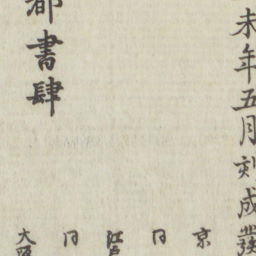 未年五月刻成發
京
同
江戸
同
大阪
都書肆